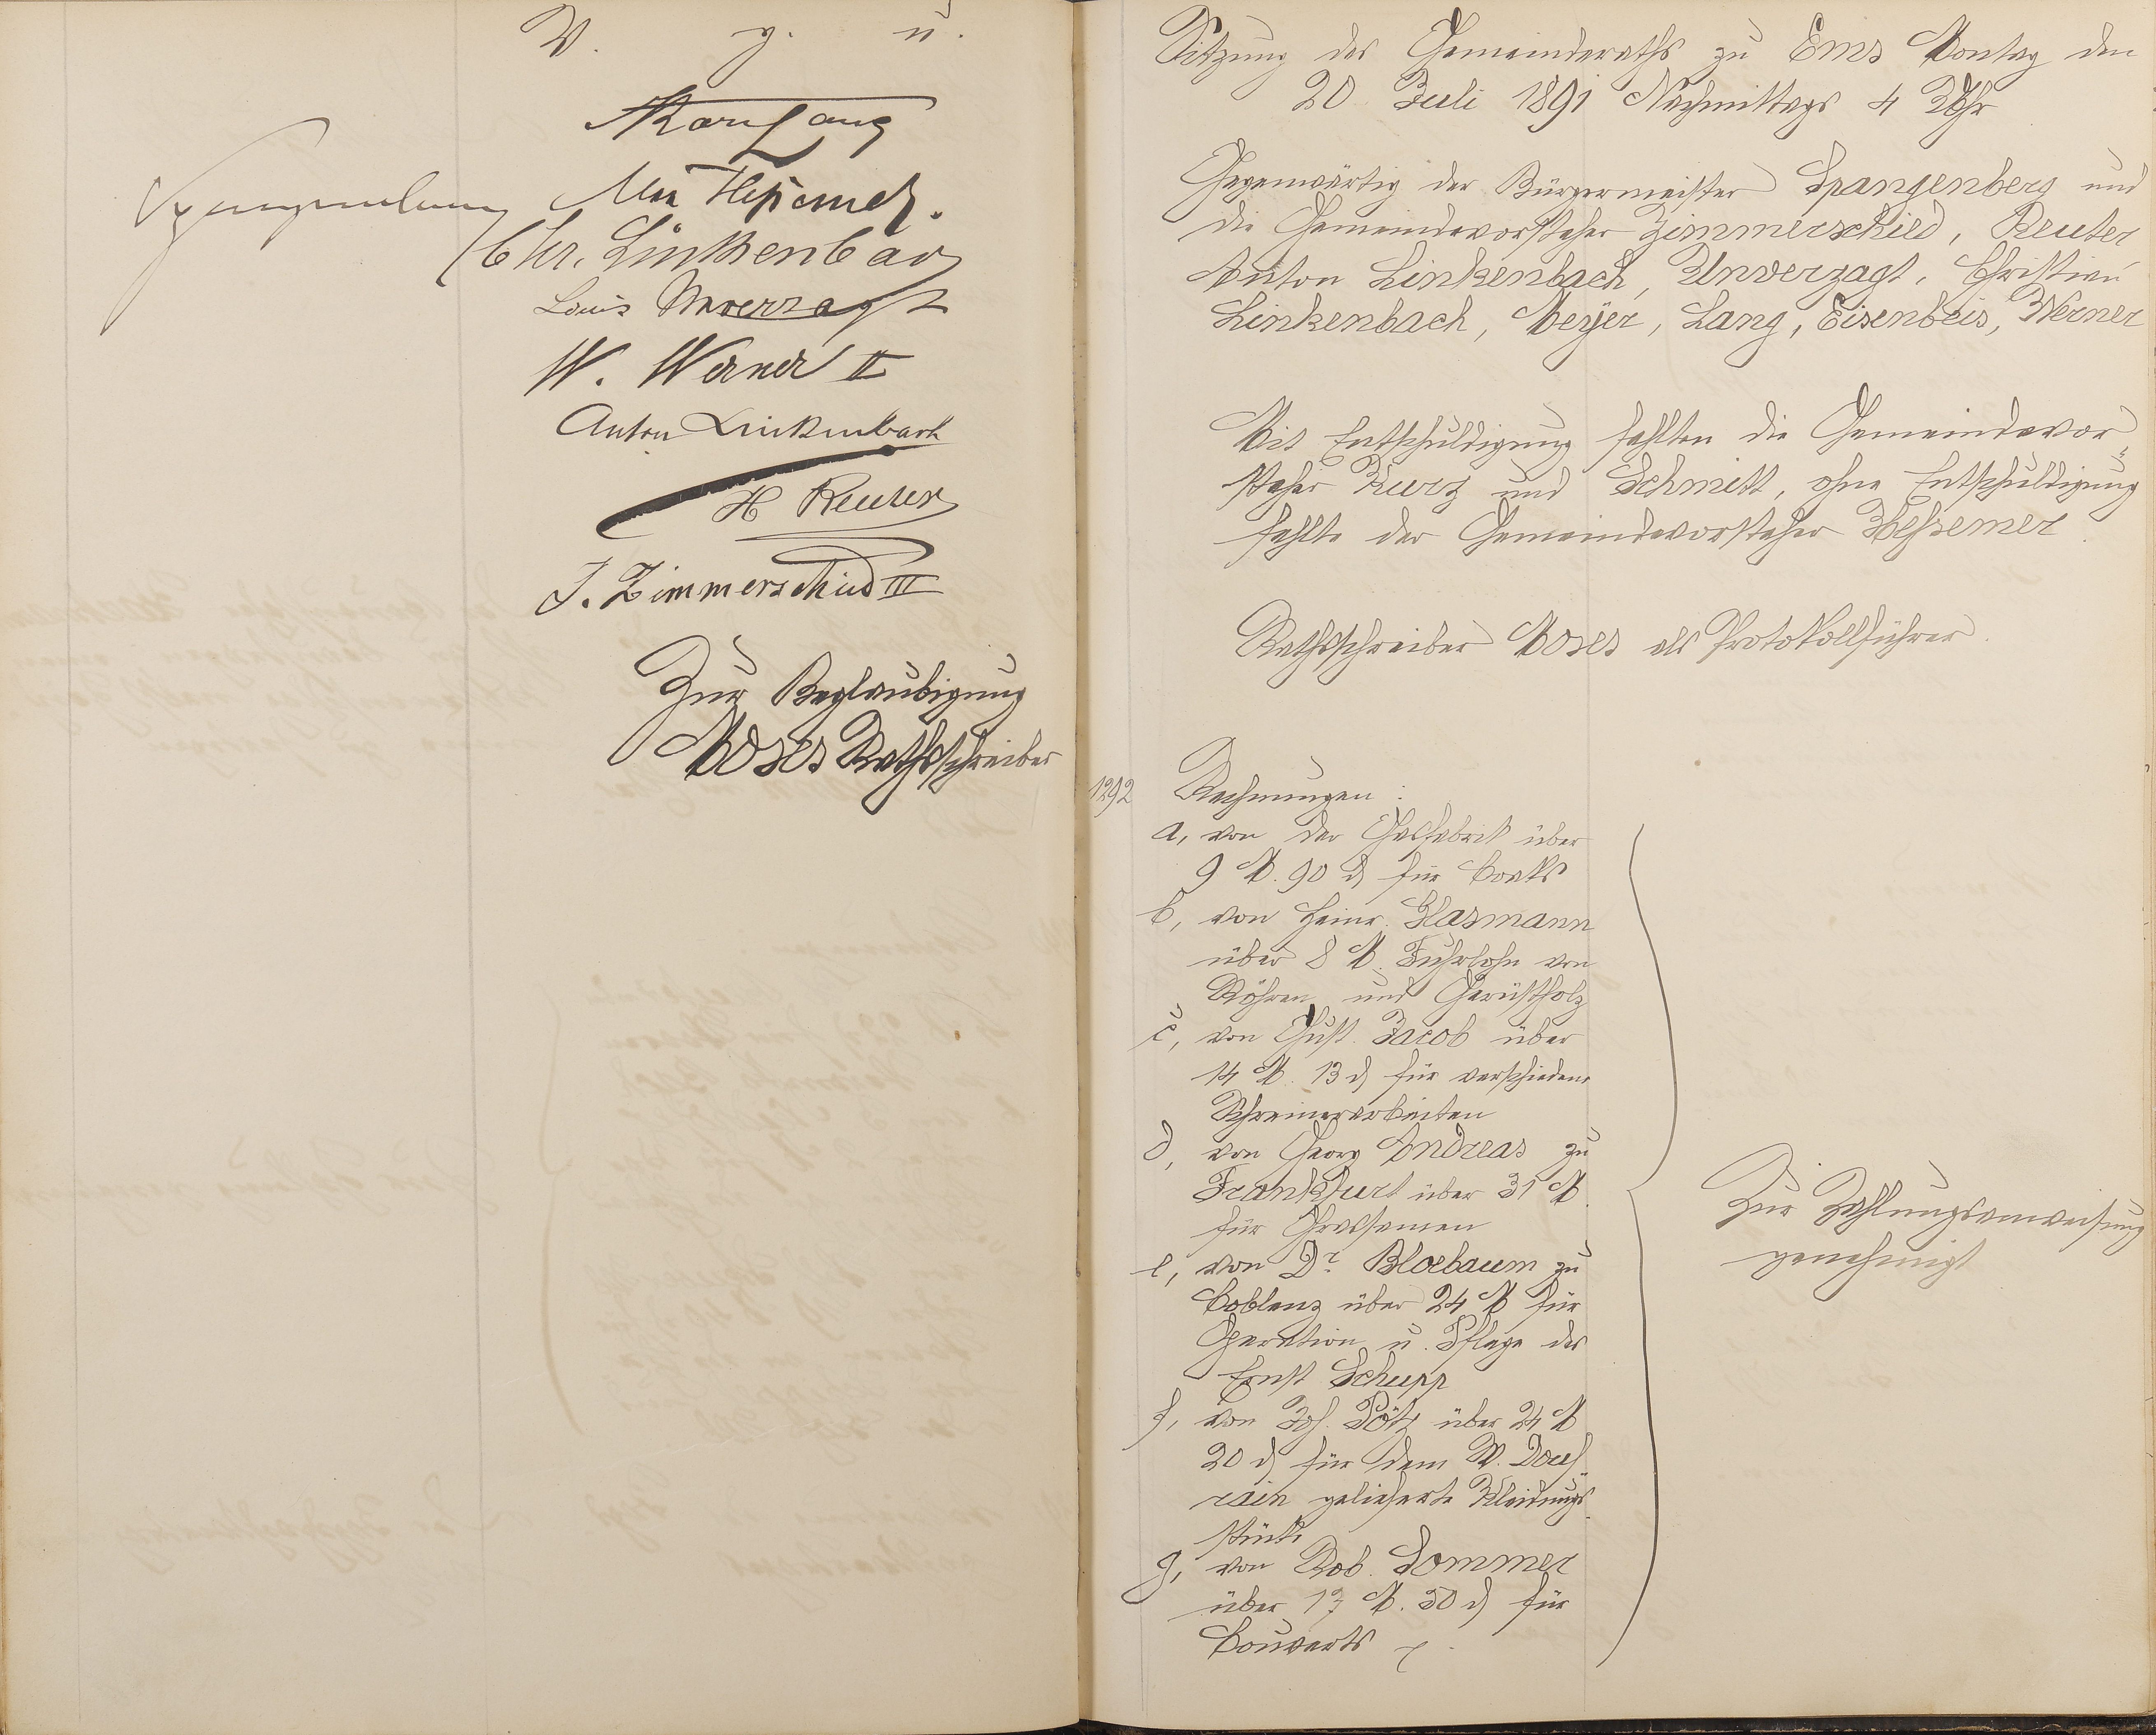 V. g. u.
Karl Lang
Spangenberg
Hessemer.
Chr. Linkenbach
Louis Unverzagt
W. Werner II
Anton Linkenbach
H Reuter
J. Zimmerschied III
Zur Beglaubigung
Moses Rathsschreiber
Sitzung des Gemeinderaths zu Ems Montag den
20 Juli 1891 Nachmittags 4 Uhr
Gegenwärtig der Bürgermeister Spangenberg und
die Gemeindevorsteher Zimmerschied, Reuter
Anton Linkenbach, Unverzagt, Christian
Linkenbach, Meyer, Lang, Eisenbeis, Werner
Mit Entschuldigung fehlten die Gemeindevor-
steher Kurz und Schmitt, ohne Entschuldigung
fehlte der Gemeindevorsteher Hessemer.
Rathsschreiber Moses als Protokollführer.
1292 Rechnungen:
a, von der Gasfabrik über
9 M. 90 d für Coaks
b, von Heinr. Glasmann
über 8 M. Fuhrlohn von
Röhren und Gerüstholz
c, von Gust. Jacob über
14 M. 13 d für verschiedene
Schreinerarbeiten
d, von Georg Andreas zu
Frankfurt über 31 M.
für Grassamen
e, von Dr. Bloebaum zu
Coblenz über 24 M für
Operation u. Pflege des
Ernst Schupp
f, von Joh. Pötz über 24 M
20 d für dem W. Dauf-
rain gelieferte Kleidungs-
stücke
g, von Rob. Sommer
über 17 M. 50 d für
Couverts
Zur Zahlungsanweisung
genehmigt